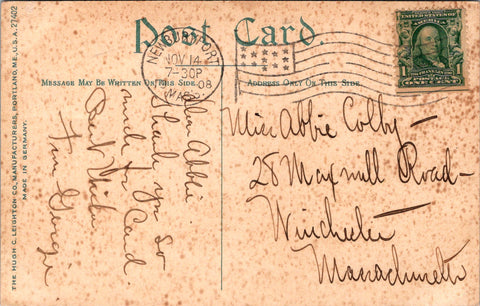 Post Card.
NEWBURYPORT
NOV 14
7-30P
1908
MASS.
UNITED STATES OF AMERICA
FRANKLIN
ONE CENT
MESSAGE MAY BE WRITTEN ON THIS SIDE.
ADDRESS ONLY ON THIS SIDE.
THE HUGH C. LEIGHTON CO., MANUFACTURERS, PORTLAND, ME., U.S.A. 27402
MADE IN GERMANY.
Dear Abbie
Thank you so
much for Card.
Best Wishes
From Georgie
Miss Abbie Colby
28 Maxwell Road
Winchester
Massachusetts